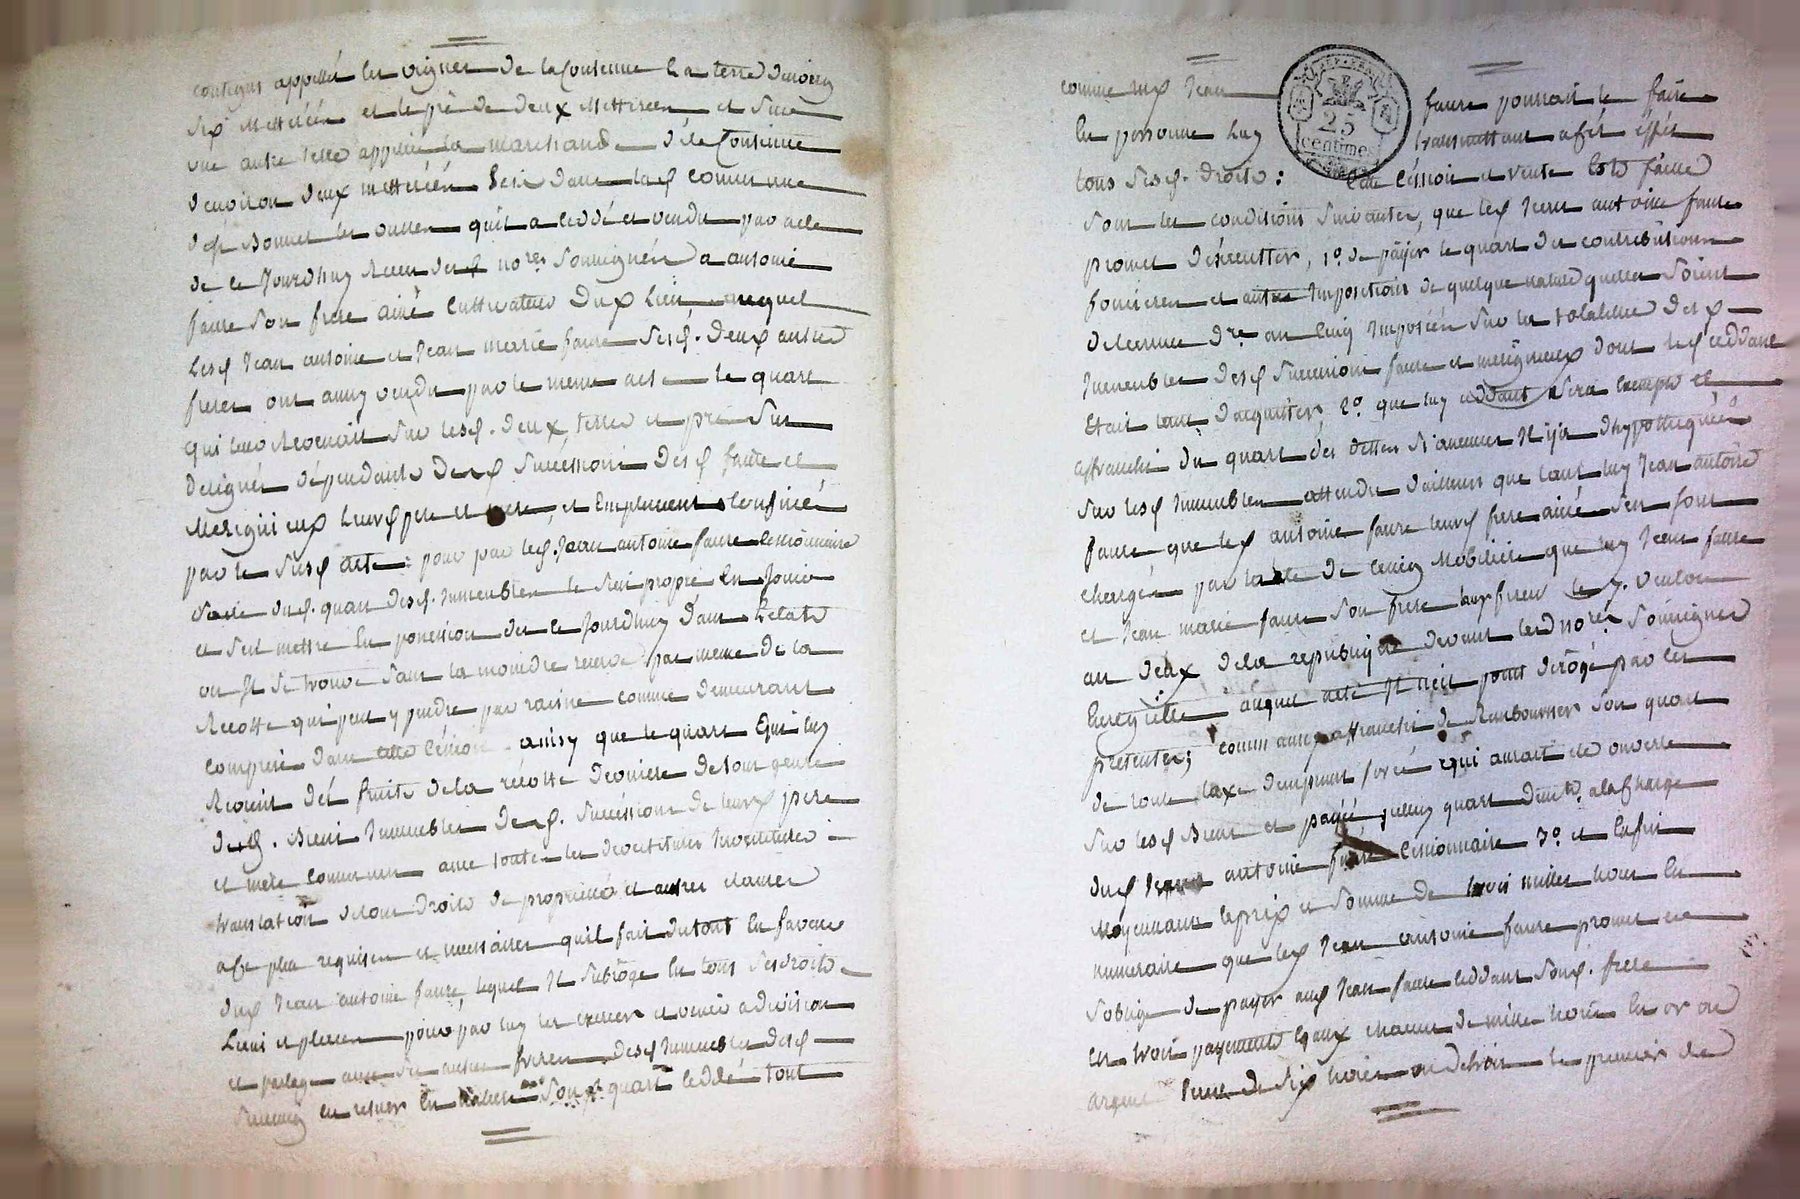 contigus appellés les vignes de la Coutenue la terre denviron
six mettéréés et le pré de deux mettéréés et sur
une autre terre appellée la marchande dite Coutenue
denviron deux mettéréés le tout dans lad commune
de Bonnet les outre quil a ceddé et vendu par acte
de ce jourdhuy Receu des nores Soussignés a antoine
faure son frere ainé Cultivateur dud Lieu auquel
Lesd Jean antoine et Jean marie faure sesd. deux autres
freres ont aussy vendu par le meme acte le quart
qui leur Revenait sur lesd. deux terres et pré sus
designés dépendants desd successions desd faure et
Merigneux leurs pere et mere, et Emplacement Confinés
par le susd acte: pour par led. Jean antoine faure cessionnaire
dud. quart desd. immeubles le sien propre en Jouir
et sen mettre en possession des ce Jourdhuy dans Letat
ou Il se trouve sans la moindre reserve pas meme de la
Recolte qui peut y pendre par racine comme demeurant
comprise dans cette Cession ainsy que le quart Qui luy
Revient des fruits de la recolte derniere de tout genre
desd. Biens Immeubles desd. successions de leurs pere
et mere communs avec toutes les devestitures Investitures
translation de tous droits de propriété et autres clauses
a ce plus requises et necessaires quil fait du tout en faveur
dud Jean antoine faure, lequel Il subroge en tous ses droits
Lieux et places pour par luy les exercer et venir a division
et partage avec ses autres freres desd Immeubles desd
en rester en son quart ceddé tout
comme led Jean faure pourrait le faire
En personne luy transmettant a cet effet
tous sesd. droits: Cette Cession et vente Est faitte
sous les conditions suivantes, que led Jean antoine faure
promet dexecutter, 1o. de payer le quart des contributions
foncieres et autres Impositions de quelque nature quelles soient
de lannee dre an cinq Imposées sur la totalitté desd
Immeubles desd successions faure et merigneux dont led ceddant
Etait tenu dacquitter, 2o. que luy ceddant sera Exempt et
affranchi du quart des dettes si aucunes Il y a dhypothequées
sur lesd Immeubles attendu dailleurs que tant luy Jean antoine
faure que led antoine faure leurd frere ainé sen sont
chargés par la de Mobiliere que luy Jean faure
et Jean marie faure son frere leurs firent le 7. ventose
an deux de la republique devant lesd nores Soussignés
auquel acte Il nest point derogé par les
presentes; comm aussy affranchi de Rembourser son quart
de toute taxe demprunt forcé qui aurait eté ouverte
sur lesd Biens et payée, quart a la charge
dud Jean antoine faure Cessionnaire 3o. et Enfin
Moyennant le prix et somme de trois milles livres En
numeraire que led Jean antoine faure promet et
soblige de payer aud Jean faure ceddant sond. frere
en trois payements Egaux chacun de mille livres En or ou
argent de Six livres ou le premier de
25
centimes